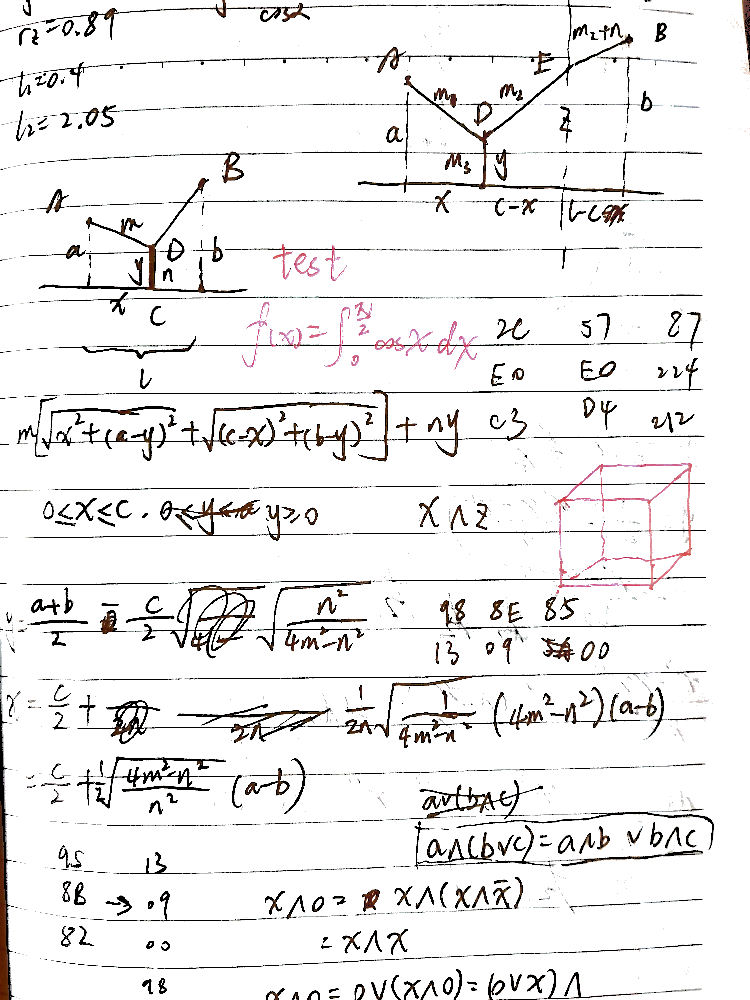 r2=0.89
cosα
l1=0.4
l2=2.05
A m1 D m2 E m2+n B
a m3 y z b
x c-x l-c
A m D B
a y n b
x C
l
test
f(x)=∫₀^(π/2) cosx dx
2C 57 87
E0 E0 224
C3 D4 212
m[√(x²+(a-y)²)+√((c-x)²+(b-y)²)]+ny
0≤x≤c. y≥0
x∧z
(a+b)/2 - c/2 √(n²/(4m²-n²))
98 8E 85
13 09 00
x=c/2+ 1/(2n) √(1/(4m²-n²)) (4m²-n²)(a-b)
=c/2+1/2 √((4m²-n²)/n²) (a-b)
a∨(b∧c)
a∧(b∨c)=a∧b ∨b∧c
95 13
8B → 09
82 00
98
x∧0= x∧(x∧x̄)
=x∧x
x∧0=0∨(x∧0)=(0∨x)∧